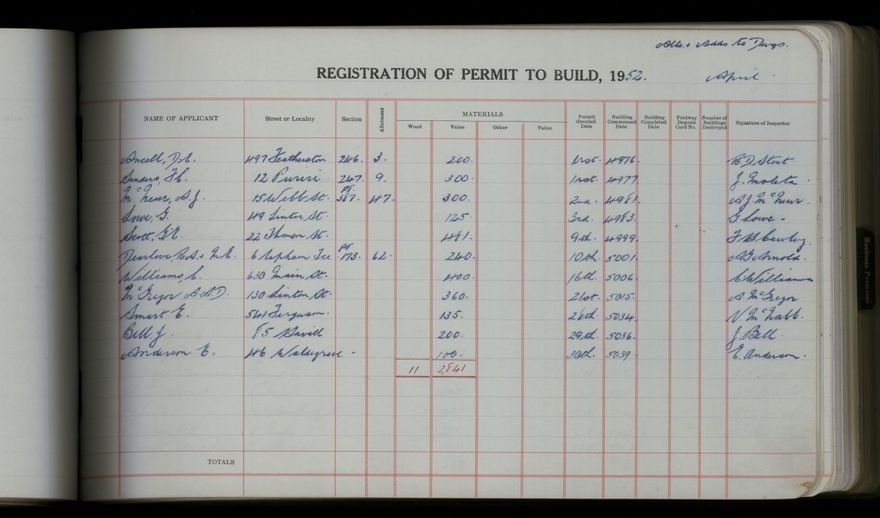 Alts. & Adds to Dwgs.
REGISTRATION OF PERMIT TO BUILD, 1952. April.
NAME OF APPLICANT Street or Locality Section Allotment MATERIALS Wood Value Other Value Permit Granted Date Building Commenced Date Building Completed Date Footway Deposit Card No. Number of Buildings Destroyed Signature of Inspector
Ancell, D. 497 Featherston 246. 3. 200. 1st. 4976.
Sanders, 12 Puriri 247. 9. 300. 1st. 4977. J.
McNeur, A.J. 15 Webb St. Pt 387. 47. 300. 2nd. 4981. A J McNeur.
Lowe, G. 49 Linton St. 125 3rd. 4983. G Lowe.
Scott, G.E. 22 Thomson St. 481. 9th. 4999.
Dearlove 6 Tce Pt 173. 62. 240. 10th. 5001. Arnold.
Williams, C. 630 Main St. 400. 16th. 5006. C Williams
McGregor A.A.D. 130 Linton St. 360. 21st. 5015. A McGregor
Smart E. 541 Ferguson. 135. 28th. 5034. V McNabb.
Bell J. 85 Savill 200. 29th. 5036. J. Bell.
Anderson E. 46 Waldegrave 100. 30th. 5039. E. Anderson.
11 2841
TOTALS